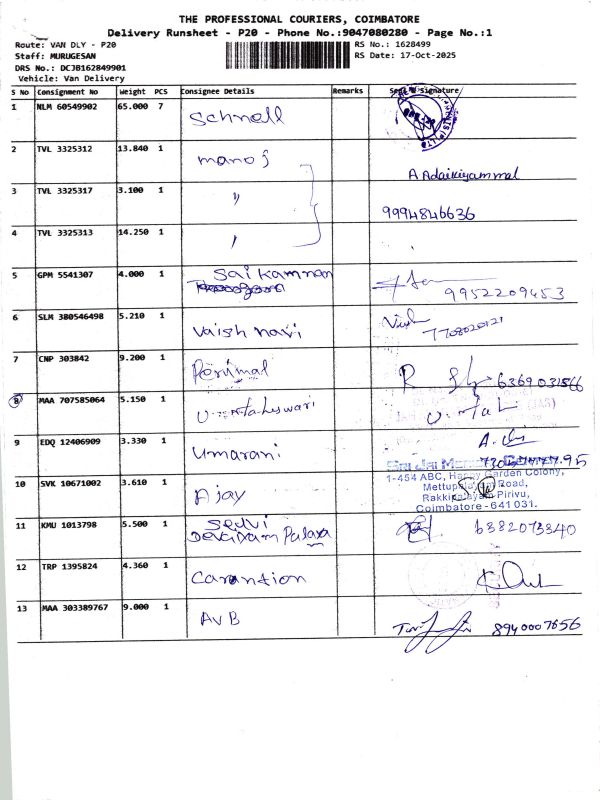 THE PROFESSIONAL COURIERS, COIMBATORE
Delivery Runsheet - P20 - Phone No.:9047080280 - Page No.:1
Route: VAN DLY - P20 RS No.: 1628499
Staff: MURUGESAN RS Date: 17-Oct-2025
DRS No.: DCJB162849901
Vehicle: Van Delivery
S No Consignment No Weight PCS Consignee Details Remarks Signature
1 NLM 60549902 65.000 7 Schnell
2 TVL 3325312 13.840 1 manoj A Adaikiyammal
3 TVL 3325317 3.100 1 " 9994846636
4 TVL 3325313 14.250 1 "
5 GPM 5541307 4.000 1 Sai kamnan 9952209453
6 SLM 380546498 5.210 1 Vaish navi 7708020121
7 CNP 303842 9.200 1 Perumal R
8 MAA 707585064 5.150 1 U. Maheswari
9 EDQ 12406909 3.330 1 Umarani
1-454 ABC, Happy Garden Colony,
10 SVK 10671002 3.610 1 Ajay Road,
Pirivu,
Coimbatore - 641 031.
11 KMU 1013798 5.500 1 Selvi 6382073340
12 TRP 1395824 4.360 1 Carantion
13 MAA 303389767 9.000 1 AVB 8940007656